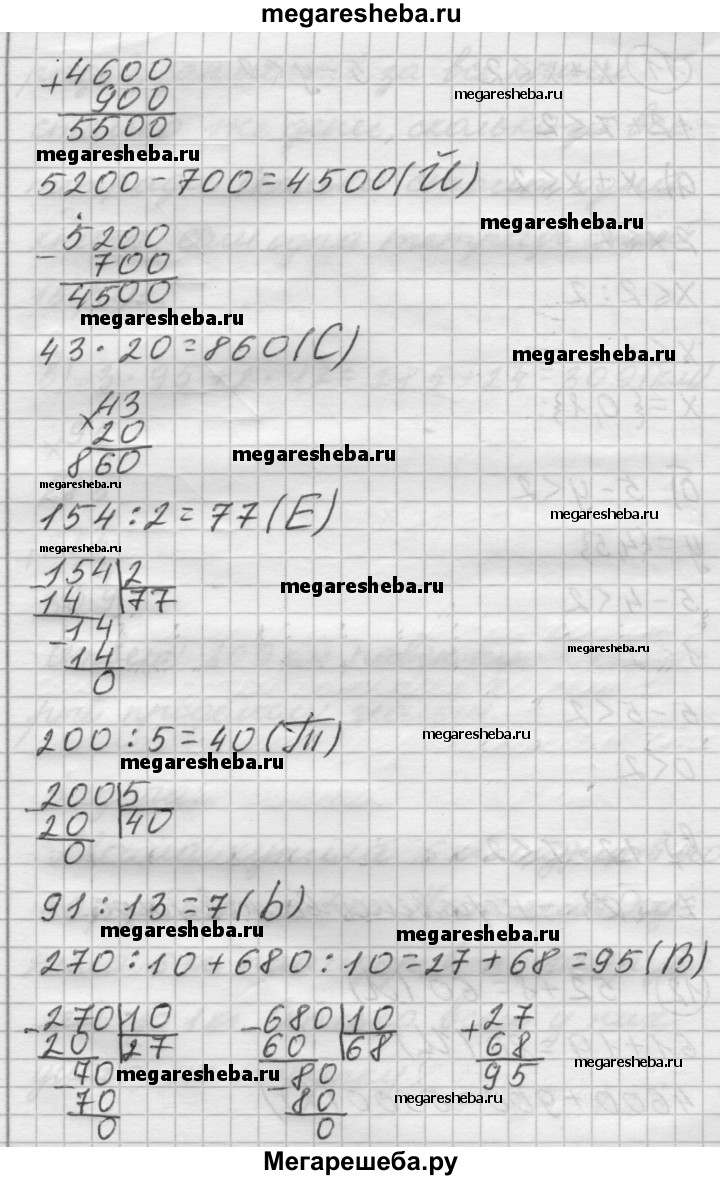 megaresheba.ru
+4600
900
5500
megaresheba.ru
megaresheba.ru
5200-700=4500(Й)
megaresheba.ru
-5200
700
4500
megaresheba.ru
43·20=860(С)
megaresheba.ru
×43
20
860
megaresheba.ru
megaresheba.ru
154:2=77(Е)
megaresheba.ru
megaresheba.ru
-154|2
14 |77
-14
14
0
megaresheba.ru
megaresheba.ru
200:5=40(Т)
megaresheba.ru
megaresheba.ru
-200|5
20 |40
0
91:13=7(Ь)
megaresheba.ru
megaresheba.ru
270:10+680:10=27+68=95(В)
-270|10 -680|10 +27
20 |27 60 |68 68
-70 -80 95
70 80
0 0
megaresheba.ru
megaresheba.ru
megaresheba.ru
Мегарешеба.ру